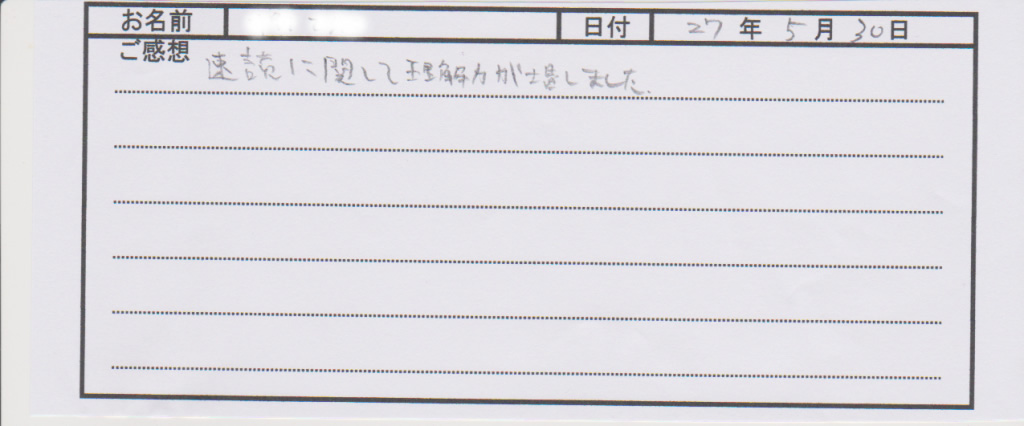 お名前 日付 27年 5月 30日
ご感想 速読に関して理解力が増しました.